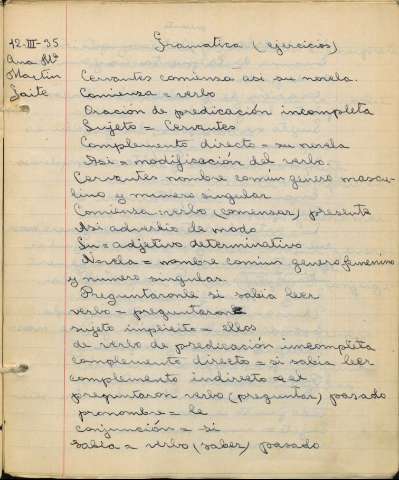 12-III-35
Ana Mª
Martín
Laite
Gramatica (ejercicios)
Cervantes comiensa asi su novela.
Comiensa = verbo
Oración de predicación incompleta
Sujeto = Cervantes
Complemento directo = su novela
Asi = modificación del verbo.
Cervantes nombre común genero mascu-
lino y número singular
Comiensa verbo (comensar) presente
Asi adverbio de modo
Su = adjetivo determinativo
Novela = nombre comun genero femenino
y numero singular.
Preguntaronle si sabia leer
verbo = preguntaron
sujeto implicito = ellos
de verbo de predicación incompleta
complemento directo = si sabia leer
complemento indirecto = el
preguntaron verbo (preguntar) pasado
pronombre = le
conjunción = si
sabia = verbo (saber) pasado